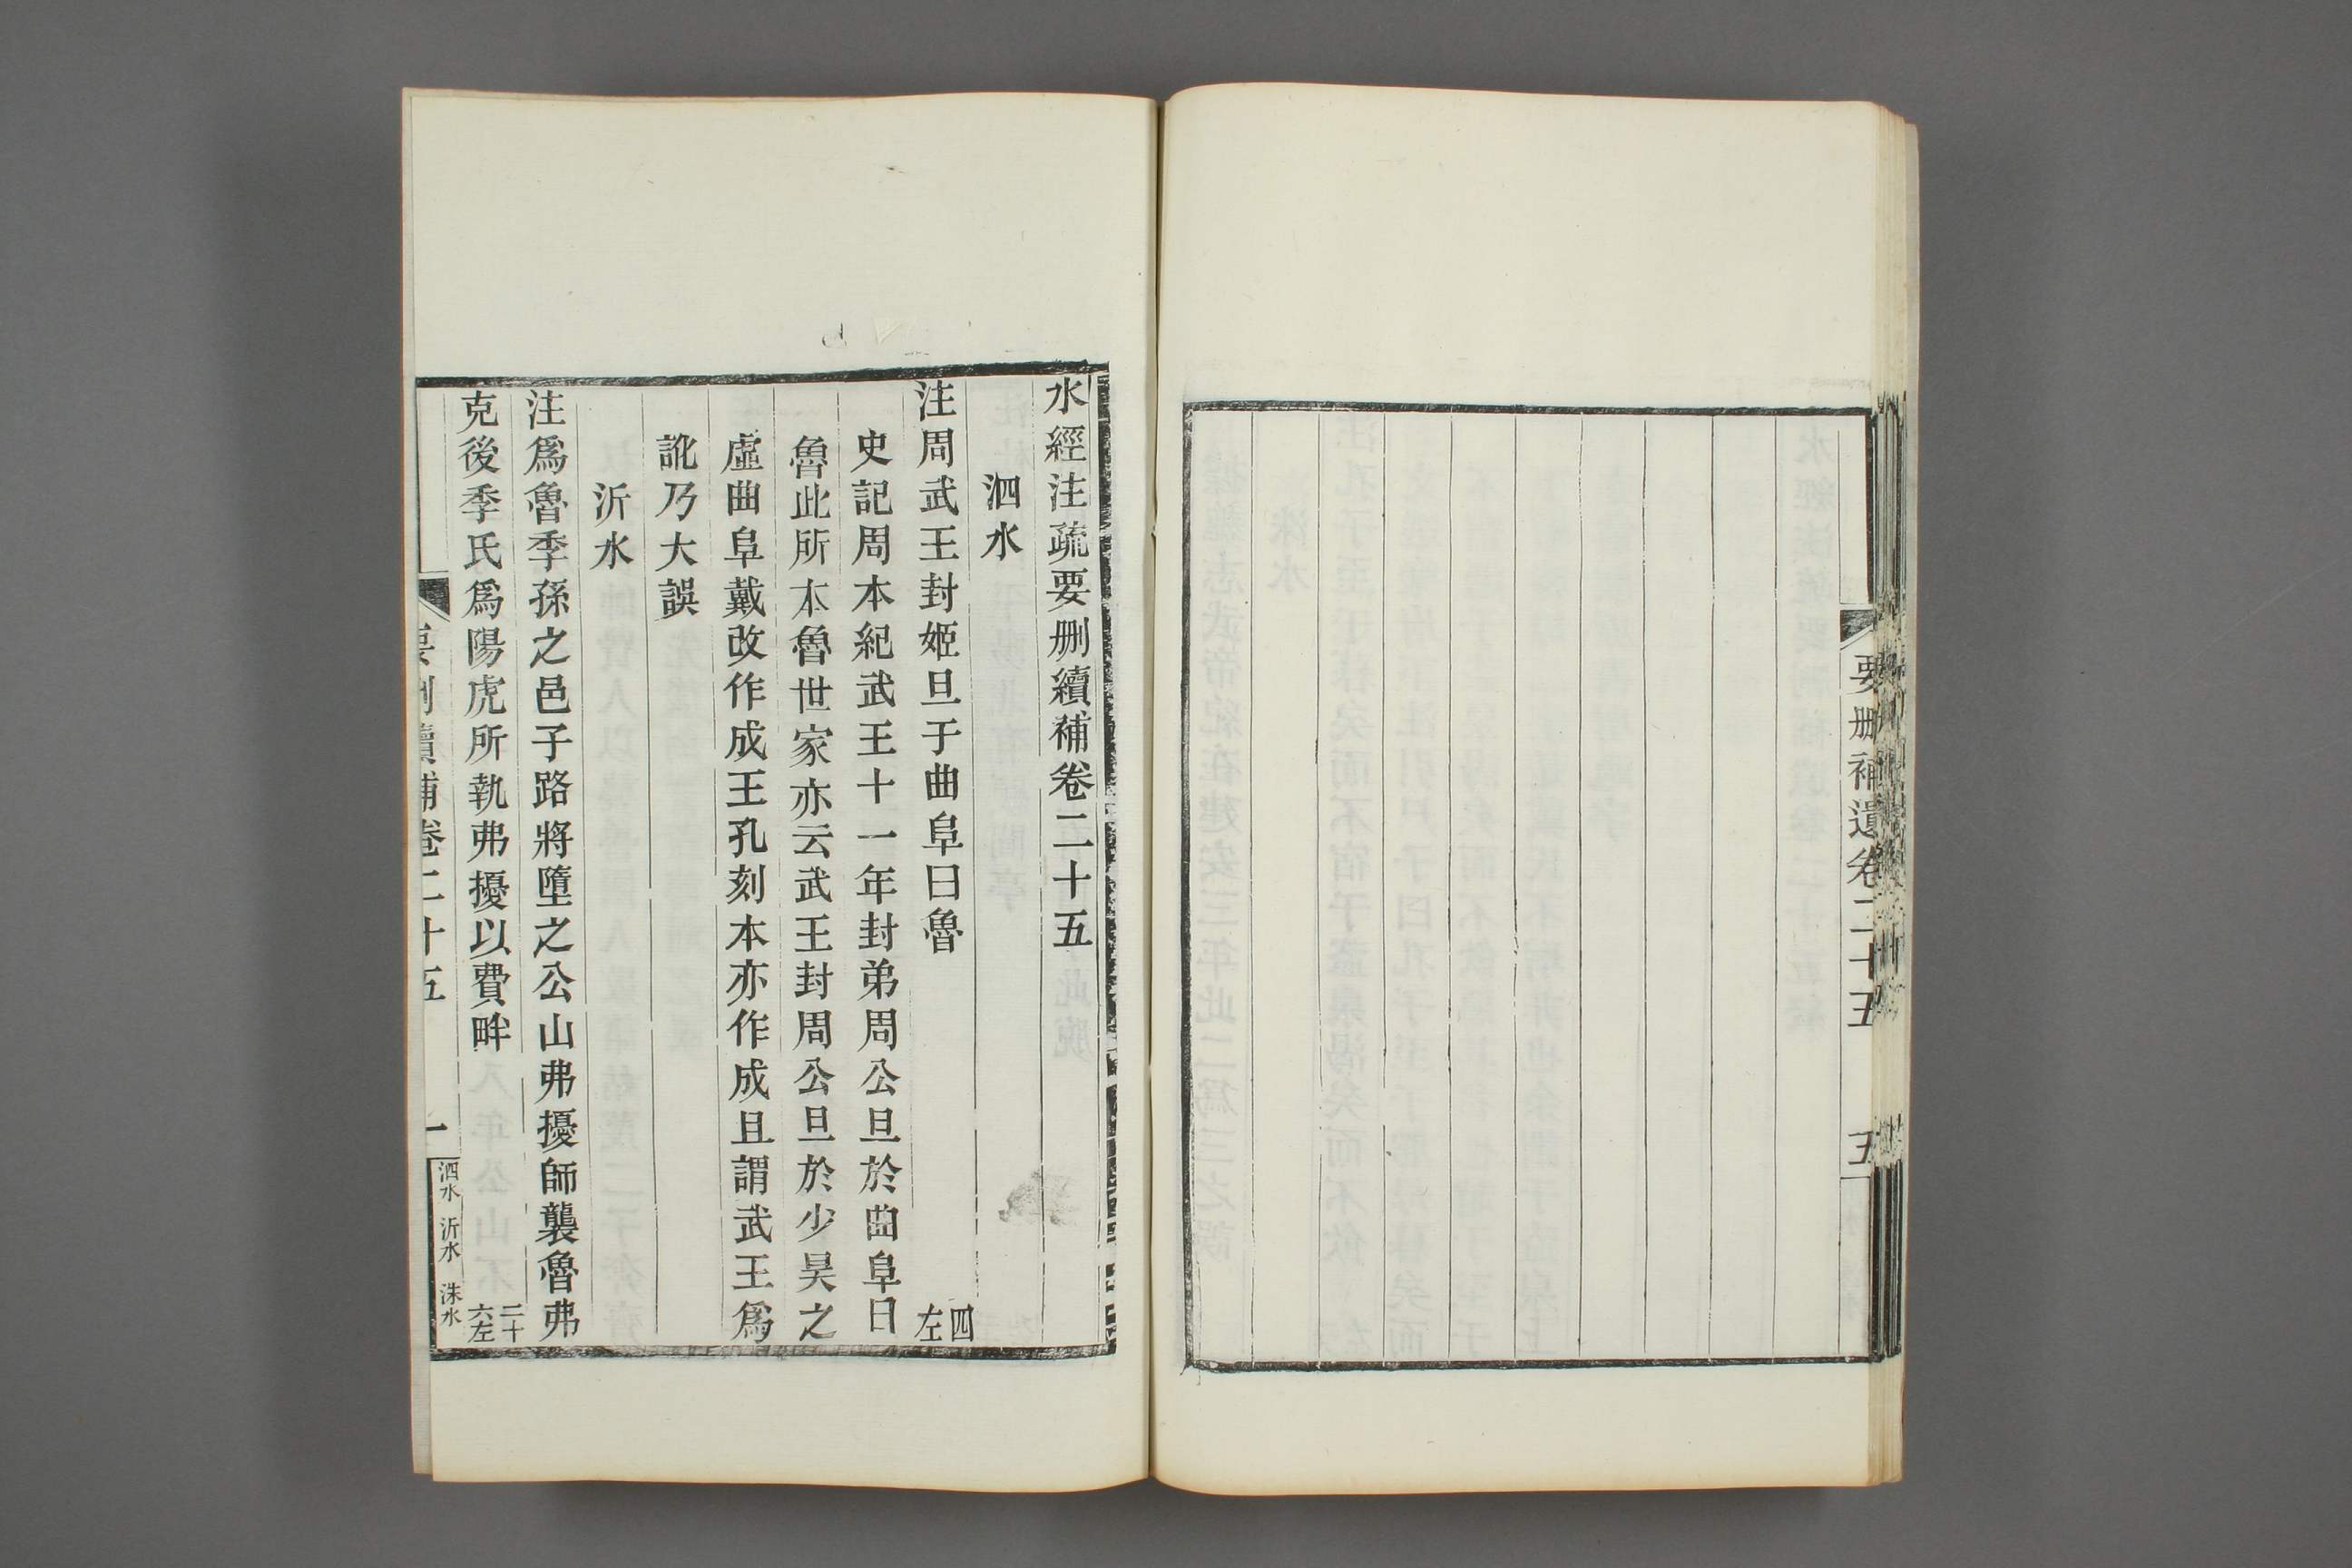 要删補遺卷二十五
五
水經注疏要删續補卷二十五
泗水
注周武王封姬旦于曲阜曰魯
四左
史記周本紀武王十一年封弟周公旦於曲阜曰
魯此所本魯世家亦云武王封周公旦於少昊之
虛曲阜戴改作成王孔刻本亦作成且謂武王爲
訛乃大誤
沂水
注爲魯季孫之邑子路將墮之公山弗擾師襲魯弗
克後季氏爲陽虎所執弗擾以費畔
二十六左
要删續補卷二十五
一
泗水 沂水 洙水